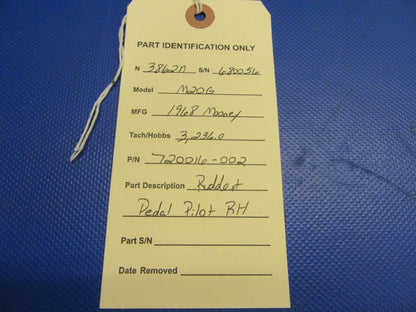 PART IDENTIFICATION ONLY
N 3862N S/N 680056
Model M20G
MFG 1968 Mooney
Tach/Hobbs 3,236.0
P/N 720016-002
Part Description Rudder
Pedal Pilot RH
Part S/N
Date Removed